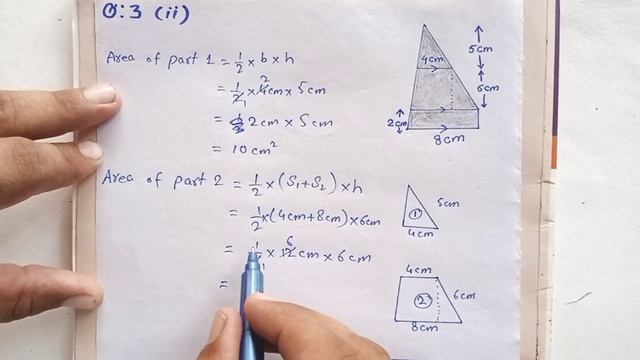 Q:3 (ii)
Area of part 1 = 1/2 × b × h
= 1/2 1 × 4 2 cm × 5cm
= 2cm × 5cm
= 10cm²
Area of part 2 = 1/2 × (S1 + S2) × h
= 1/2 × (4cm + 8cm) × 6cm
= 1/2 1 × 12 6 cm × 6cm
=
5cm
4cm
6cm
2cm
8cm
1
5cm
4cm
4cm
2
6cm
8cm